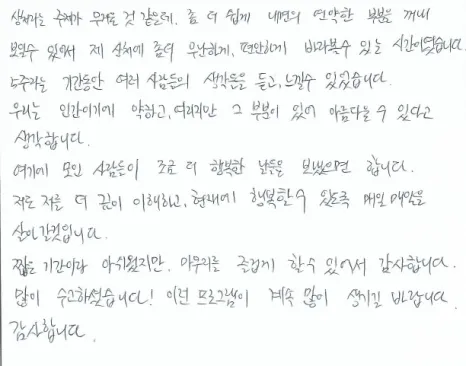 상처라는 주제가 무거울 것 같은데. 좀 더 쉽게 내면의 연약한 부분을 꺼내
보일수 있어서 제 상처에 좀더 무난하게, 편안하게 바라볼수 있는 시간이였습니다.
5주라는 기간동안 여러 사람들의 생각들을 듣고, 느낄수 있었습니다.
우리는 인간이기에 약하고, 여리지만 그 부분이 있어 아름다울 수 있다고
생각합니다.
여기에 모인 사람들이 조금 더 행복한 날들을 보냈으면 합니다.
저도 저를 더 깊이 이해하고, 현재에 행복할수 있도록 매일 매일을
살아갈것입니다.
짧은 기간이라 아쉬웠지만, 마무리를 즐겁게 할수 있어서 감사합니다.
많이 수고하셨습니다! 이런 프로그램이 계속 많이 생기길 바랍니다.
감사합니다.